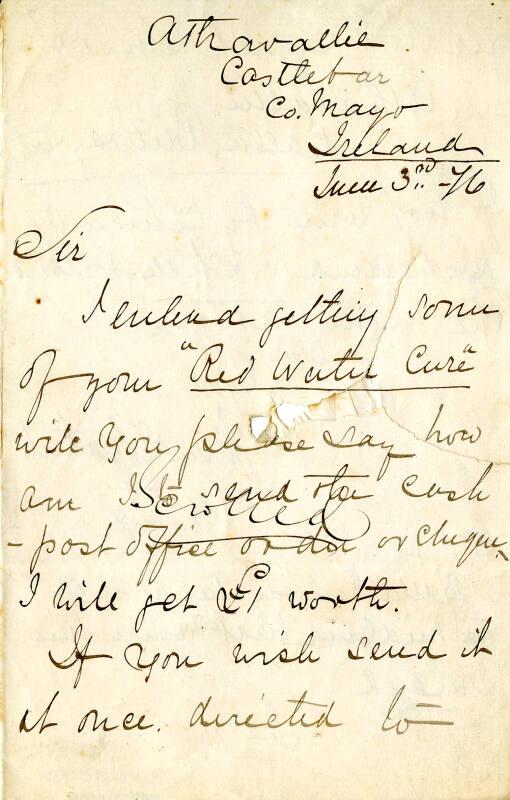 Athavallie
Castlebar
Co. Mayo
Ireland
June 3rd -76
Sir
I intend getting some
of your "Red Water Cure"
will you please say how
am I to send the cash
- post office order or cheque,
I will get £1 worth.
If you wish send it
at once. directed to